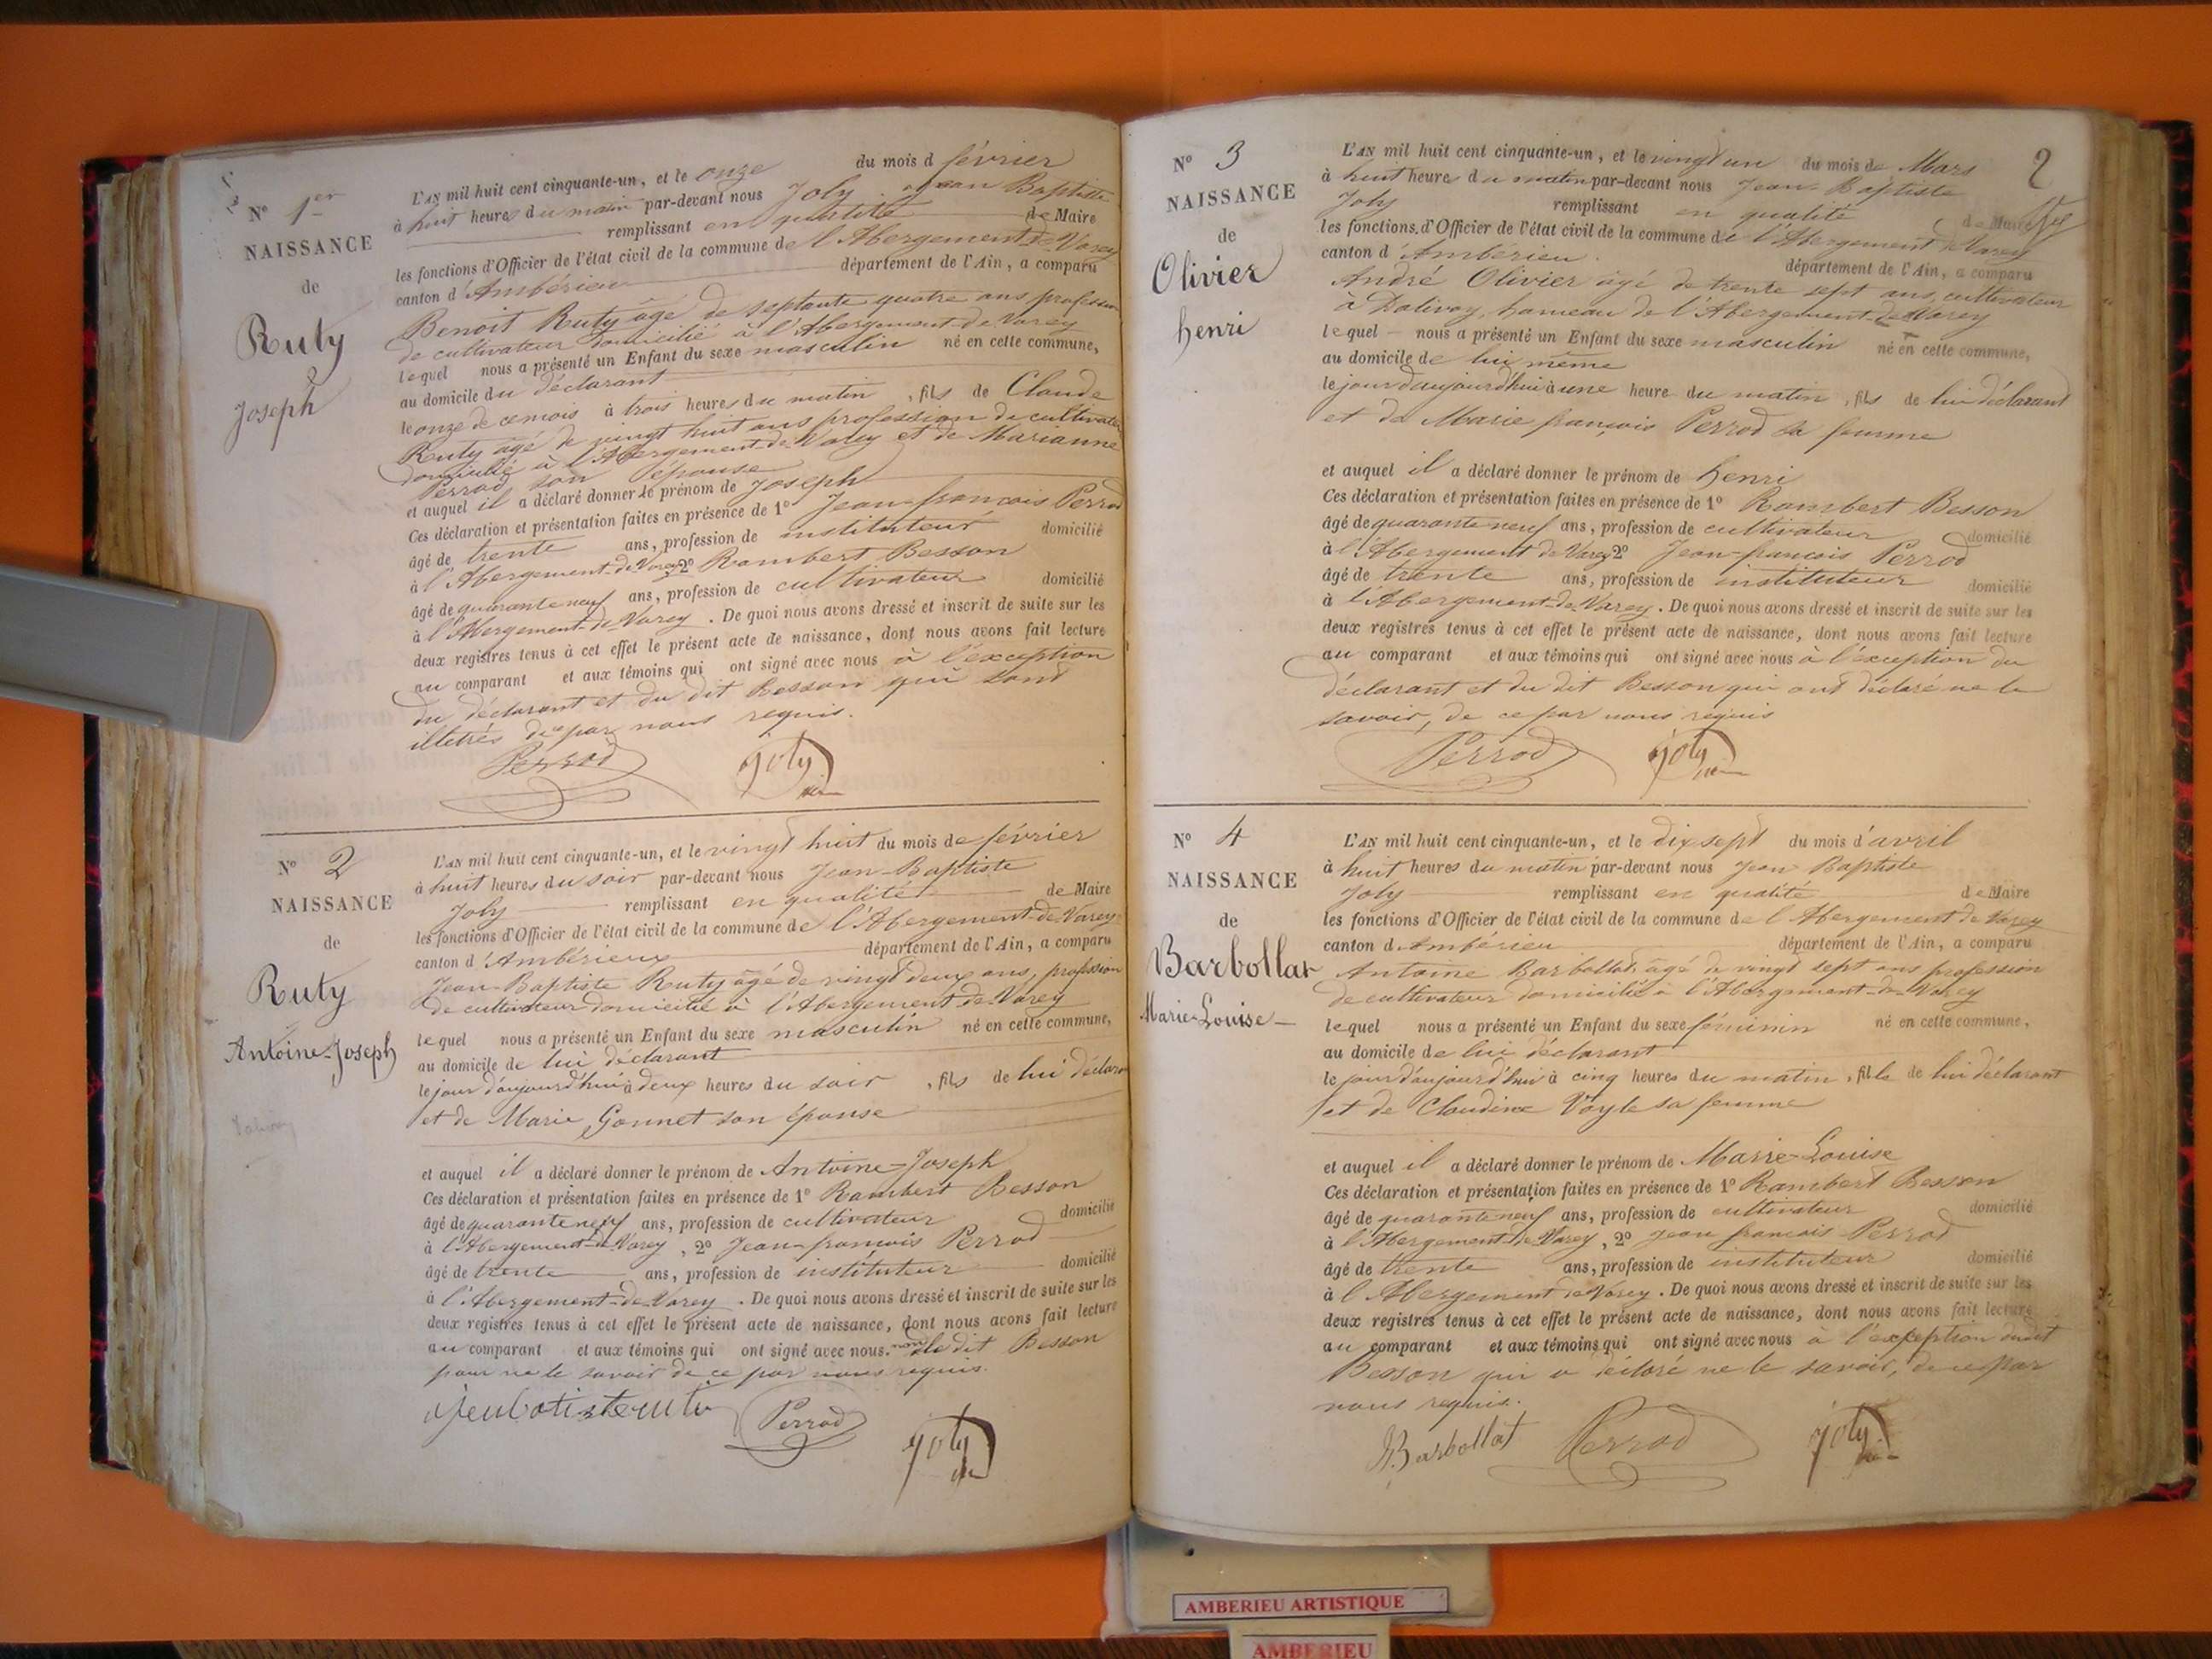 N° 1er
NAISSANCE
de
Ruty
Joseph
L'AN mil huit cent cinquante-un, et le onze du mois d février
à huit heures du matin par-devant nous Joly Jean Baptiste
remplissant en qualité de Maire
les fonctions d'Officier de l'état civil de la commune de l'Abergement-de-Varey
canton d'Ambérieu département de l'Ain, a comparu
Benoit Ruty âgé de septante quatre ans profession
de cultivateur domicilié à l'Abergement-de-Varey
lequel nous a présenté un Enfant du sexe masculin né en cette commune,
au domicile du déclarant
le onze de ce mois à trois heures du matin, fils de Claude
Ruty âgé de vingt huit ans profession de cultivateur
domicilié à l'Abergement-de-Varey et de Marianne
Perrod son épouse
et auquel il a déclaré donner le prénom de Joseph
Ces déclaration et présentation faites en présence de 1° Jean-françois Perrod
âgé de trente ans, profession de instituteur domicilié
à l'Abergement-de-Varey 2° Rambert Besson
âgé de quarante neuf ans, profession de cultivateur domicilié
à l'Abergement-de-Varey. De quoi nous avons dressé et inscrit de suite sur les
deux registres tenus à cet effet le présent acte de naissance, dont nous avons fait lecture
au comparant et aux témoins qui ont signé avec nous à l'exception
du déclarant et du dit Besson qui sont
illetrés de par nous requis.
Perrod Joly
N° 2
NAISSANCE
de
Ruty
Antoine-Joseph
L'AN mil huit cent cinquante-un, et le vingt huit du mois de février
à huit heures du soir par-devant nous Jean-Baptiste
Joly remplissant en qualité de Maire
les fonctions d'Officier de l'état civil de la commune de l'Abergement-de-Varey
canton d'Ambérieux département de l'Ain, a comparu
Jean-Baptiste Ruty âgé de vingt deux ans, profession
de cultivateur domicilié à l'Abergement-de-Varey
lequel nous a présenté un Enfant du sexe masculin né en cette commune,
au domicile de lui déclarant
le jour d'aujourd'hui à deux heures du soir, fils de lui déclarant
et de Marie Gonnet son épouse
et auquel il a déclaré donner le prénom de Antoine-Joseph
Ces déclaration et présentation faites en présence de 1° Rambert Besson
âgé de quarante neuf ans, profession de cultivateur domicilié
à l'Abergement-de-Varey, 2° Jean-francois Perrod
âgé de trente ans, profession de instituteur domicilié
à l'Abergement-de-Varey. De quoi nous avons dressé et inscrit de suite sur les
deux registres tenus à cet effet le présent acte de naissance, dont nous avons fait lecture
au comparant et aux témoins qui ont signé avec nous. non le dit Besson
pour ne le savoir de ce par nous requis.
Perrod Joly
2
N° 3
NAISSANCE
de
Olivier
henri
L'AN mil huit cent cinquante-un, et le vingt un du mois de Mars
à huit heures du matin par-devant nous Jean-Baptiste
Joly remplissant en qualité de Maire
les fonctions d'Officier de l'état civil de la commune de l'Abergement de Varey
canton d'Ambérieu département de l'Ain, a comparu
André Olivier âgé de trente sept ans, cultivateur
à Dalivoy, hameau de l'Abergement-de-Varey
lequel nous a présenté un Enfant du sexe masculin né en cette commune,
au domicile de lui même
le jour d'aujourd'hui à une heure du matin, fils de lui déclarant
et de Marie françois Perrod sa femme
et auquel il a déclaré donner le prénom de henri
Ces déclaration et présentation faites en présence de 1° Rambert Besson
âgé de quarante neuf ans, profession de cultivateur domicilié
à l'Abergement de Varey 2° Jean-francois Perrod
âgé de trente ans, profession de instituteur domicilié
à l'Abergement-de-Varey. De quoi nous avons dressé et inscrit de suite sur les
deux registres tenus à cet effet le présent acte de naissance, dont nous avons fait lecture
au comparant et aux témoins qui ont signé avec nous à l'exception du
déclarant et du dit Besson qui ont déclaré ne le
savoir, de ce par nous requis
Perrod Joly
N° 4
NAISSANCE
de
Barbollat
Marie-Louise
L'AN mil huit cent cinquante-un, et le dix sept du mois d'avril
à huit heures du matin par-devant nous Jean Baptiste
Joly remplissant en qualité de Maire
les fonctions d'Officier de l'état civil de la commune de l'Abergement de Varey
canton d'Ambérieu département de l'Ain, a comparu
Antoine Barbollat âgé de vingt sept ans profession
de cultivateur domicilié à l'Abergement-de-Varey
lequel nous a présenté un Enfant du sexe féminin né en cette commune,
au domicile de lui déclarant
le jour d'aujourd'hui à cinq heures du matin, fille de lui déclarant
et de Claudine Voyle sa femme
et auquel il a déclaré donner le prénom de Marie-Louise
Ces déclaration et présentation faites en présence de 1° Rambert Besson
âgé de quarante neuf ans, profession de cultivateur domicilié
à l'Abergement-de-Varey, 2° Jean francois Perrod
âgé de trente ans, profession de instituteur domicilié
à l'Abergement de Varey. De quoi nous avons dressé et inscrit de suite sur les
deux registres tenus à cet effet le présent acte de naissance, dont nous avons fait lecture
au comparant et aux témoins qui ont signé avec nous à l'exception dudit
Besson qui a déclaré ne le savoir, de ce par
nous requis.
Barbollat Perrod Joly
AMBERIEU ARTISTIQUE
AMBERIEU